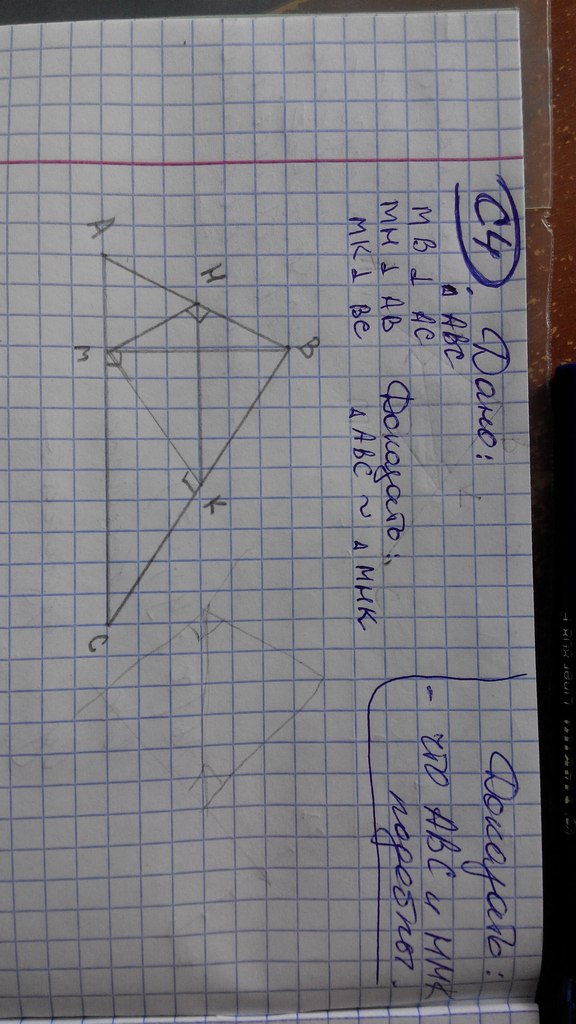 C4. Дано:
△ ABC
MB ⊥ AC
MH ⊥ AB
MK ⊥ BC
Доказать:
△ ABC ~ △ MHK
Доказать:
- что ABC и MHK
подобны.
B
H
K
A
M
C